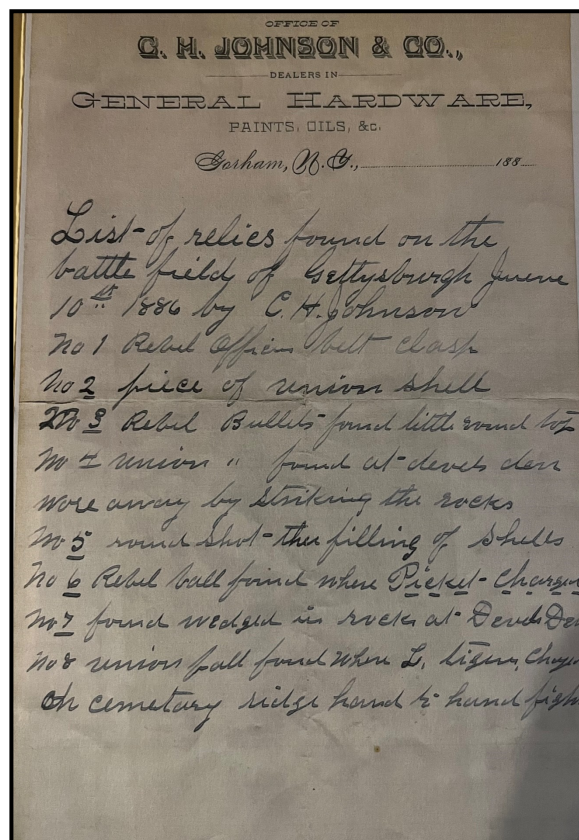 OFFICE OF
C. H. JOHNSON & CO.,
DEALERS IN
GENERAL HARDWARE,
PAINTS, OILS, &c.
Gorham, N. Y., 188
List of relics found on the
battle field of Gettysburgh Juene
10th 1886 by C. H. Johnson
No 1 Rebel Officers belt clasp
No 2 piece of union shell
No 3 Rebel Bullets found little round top
No 4 union " found at devels den
wore away by striking the rocks
No 5 round shot the filling of shells
No 6 Rebel ball found where Picket Charged
No 7 found wedged in rocks at Devels
No 8 union ball found where L. tigers
on cemetary ridge hand to hand